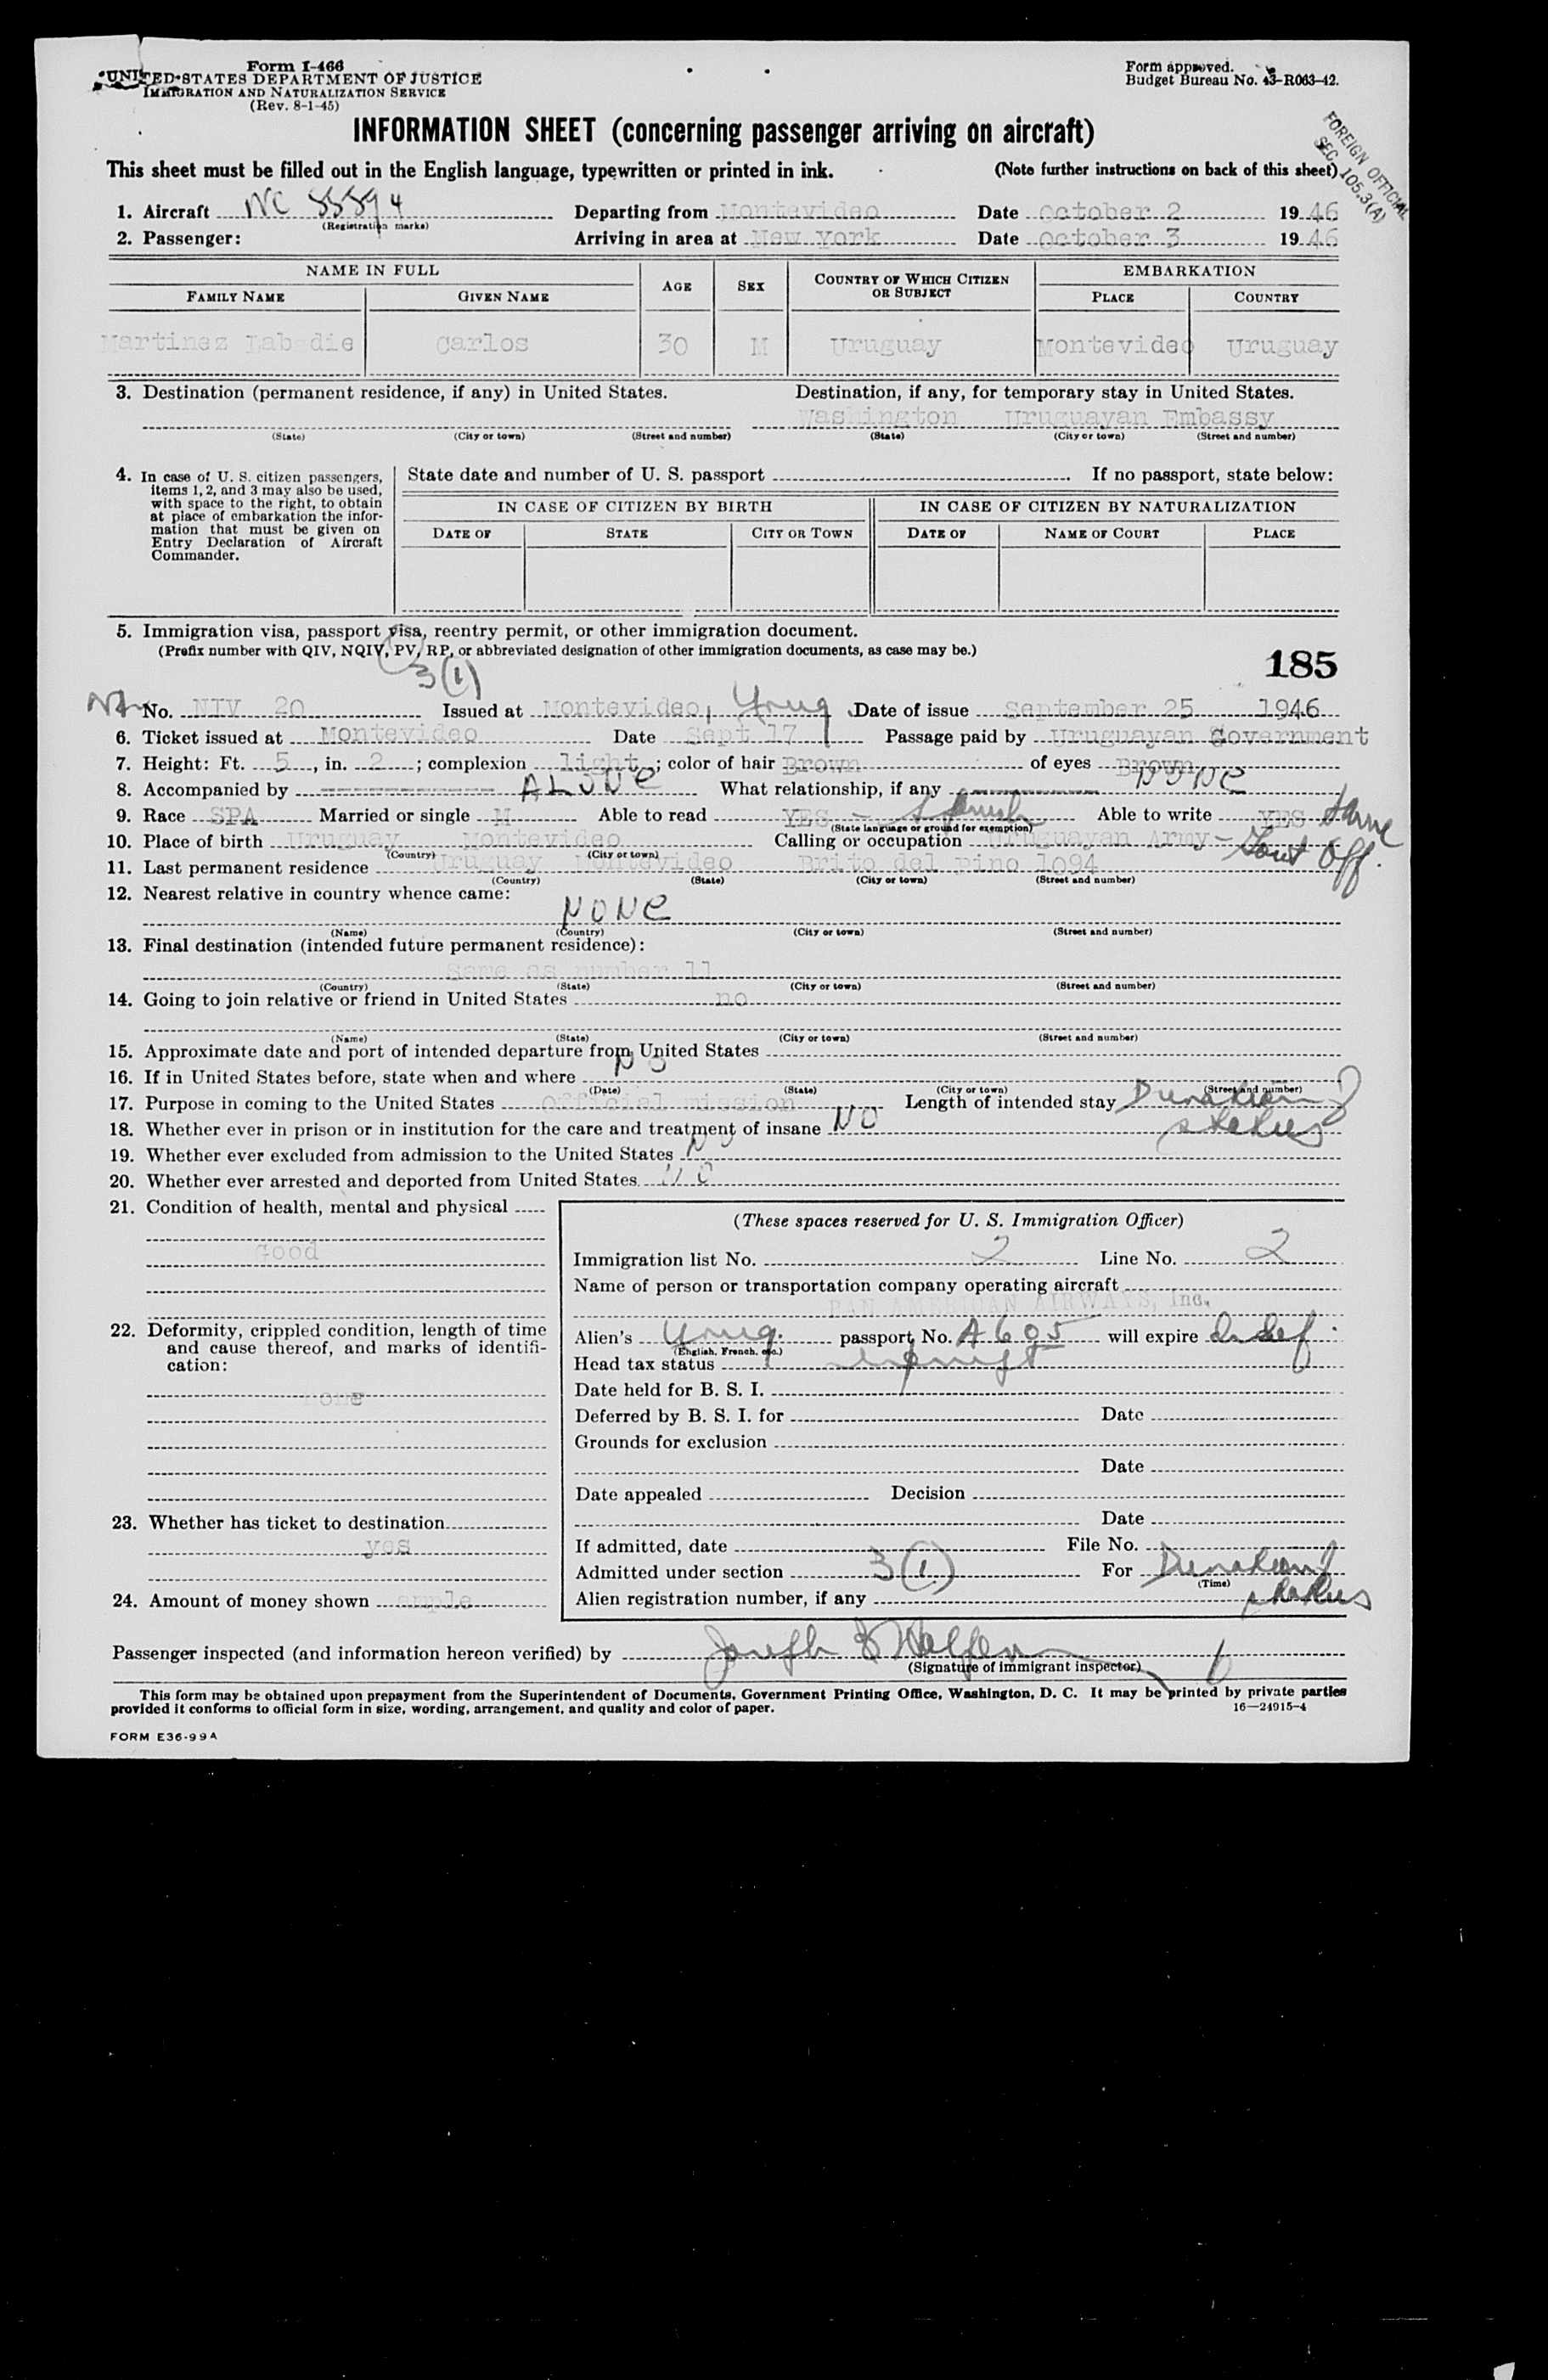 Form I-466
UNITED STATES DEPARTMENT OF JUSTICE
IMMIGRATION AND NATURALIZATION SERVICE
(Rev. 8-1-45)
Form approved.
Budget Bureau No. 43-R063-42.
FOREIGN OFFICIAL
SEC. 105.3(A)
INFORMATION SHEET (concerning passenger arriving on aircraft)
This sheet must be filled out in the English language, typewritten or printed in ink. (Note further instructions on back of this sheet)
1. Aircraft NC 88894 Departing from Montevideo Date October 2 1946
(Registration marks)
2. Passenger: Arriving in area at New York Date October 3 1946
NAME IN FULL AGE SEX COUNTRY OF WHICH CITIZEN OR SUBJECT EMBARKATION
FAMILY NAME GIVEN NAME PLACE COUNTRY
Martinez Labadie Carlos 30 M Uruguay Montevideo Uruguay
3. Destination (permanent residence, if any) in United States. Destination, if any, for temporary stay in United States.
Washington Uruguayan Embassy
(State) (City or town) (Street and number) (State) (City or town) (Street and number)
4. In case of U. S. citizen passengers, items 1, 2, and 3 may also be used, with space to the right, to obtain at place of embarkation the information that must be given on Entry Declaration of Aircraft Commander.
State date and number of U. S. passport If no passport, state below:
IN CASE OF CITIZEN BY BIRTH IN CASE OF CITIZEN BY NATURALIZATION
DATE OF STATE CITY OR TOWN DATE OF NAME OF COURT PLACE
5. Immigration visa, passport visa, reentry permit, or other immigration document.
(Prefix number with QIV, NQIV, PV, RP, or abbreviated designation of other immigration documents, as case may be.)
3(1)
185
No. NIV 20 Issued at Montevideo, Urug Date of issue September 25 1946
6. Ticket issued at Montevideo Date Sept 17 Passage paid by Uruguayan Government
7. Height: Ft. 5, in. 2; complexion light; color of hair Brown of eyes Brown
8. Accompanied by ALONE What relationship, if any NONE
9. Race SPA Married or single M Able to read YES - Spanish Able to write YES Same
(State language or ground for exemption)
10. Place of birth Uruguay Montevideo Calling or occupation Uruguayan Army - Govt Off.
(Country) (City or town)
11. Last permanent residence Uruguay Montevideo Brito del pino 1094
(Country) (State) (City or town) (Street and number)
12. Nearest relative in country whence came:
NONE
(Name) (Country) (City or town) (Street and number)
13. Final destination (intended future permanent residence):
Same as number 11
(Country) (State) (City or town) (Street and number)
14. Going to join relative or friend in United States no
(Name) (State) (City or town) (Street and number)
15. Approximate date and port of intended departure from United States
16. If in United States before, state when and where NO
(Date) (State) (City or town) (Street and number)
17. Purpose in coming to the United States Official mission Length of intended stay Duration of status
18. Whether ever in prison or in institution for the care and treatment of insane NO
19. Whether ever excluded from admission to the United States NO
20. Whether ever arrested and deported from United States NO
21. Condition of health, mental and physical
Good
22. Deformity, crippled condition, length of time and cause thereof, and marks of identification:
none
23. Whether has ticket to destination
yes
24. Amount of money shown ample
(These spaces reserved for U. S. Immigration Officer)
Immigration list No. 2 Line No. 2
Name of person or transportation company operating aircraft
PAN AMERICAN AIRWAYS, Inc.
Alien's Urug. passport No. A605 will expire Indef.
(English, French, etc.)
Head tax status exempt
Date held for B. S. I.
Deferred by B. S. I. for Date
Grounds for exclusion
Date
Date appealed Decision
Date
If admitted, date File No.
Admitted under section 3(1) For Duration of status
(Time)
Alien registration number, if any
Passenger inspected (and information hereon verified) by Joseph
(Signature of immigrant inspector)
This form may be obtained upon prepayment from the Superintendent of Documents, Government Printing Office, Washington, D. C. It may be printed by private parties
provided it conforms to official form in size, wording, arrangement, and quality and color of paper. 16—24915-4
FORM E36-99A